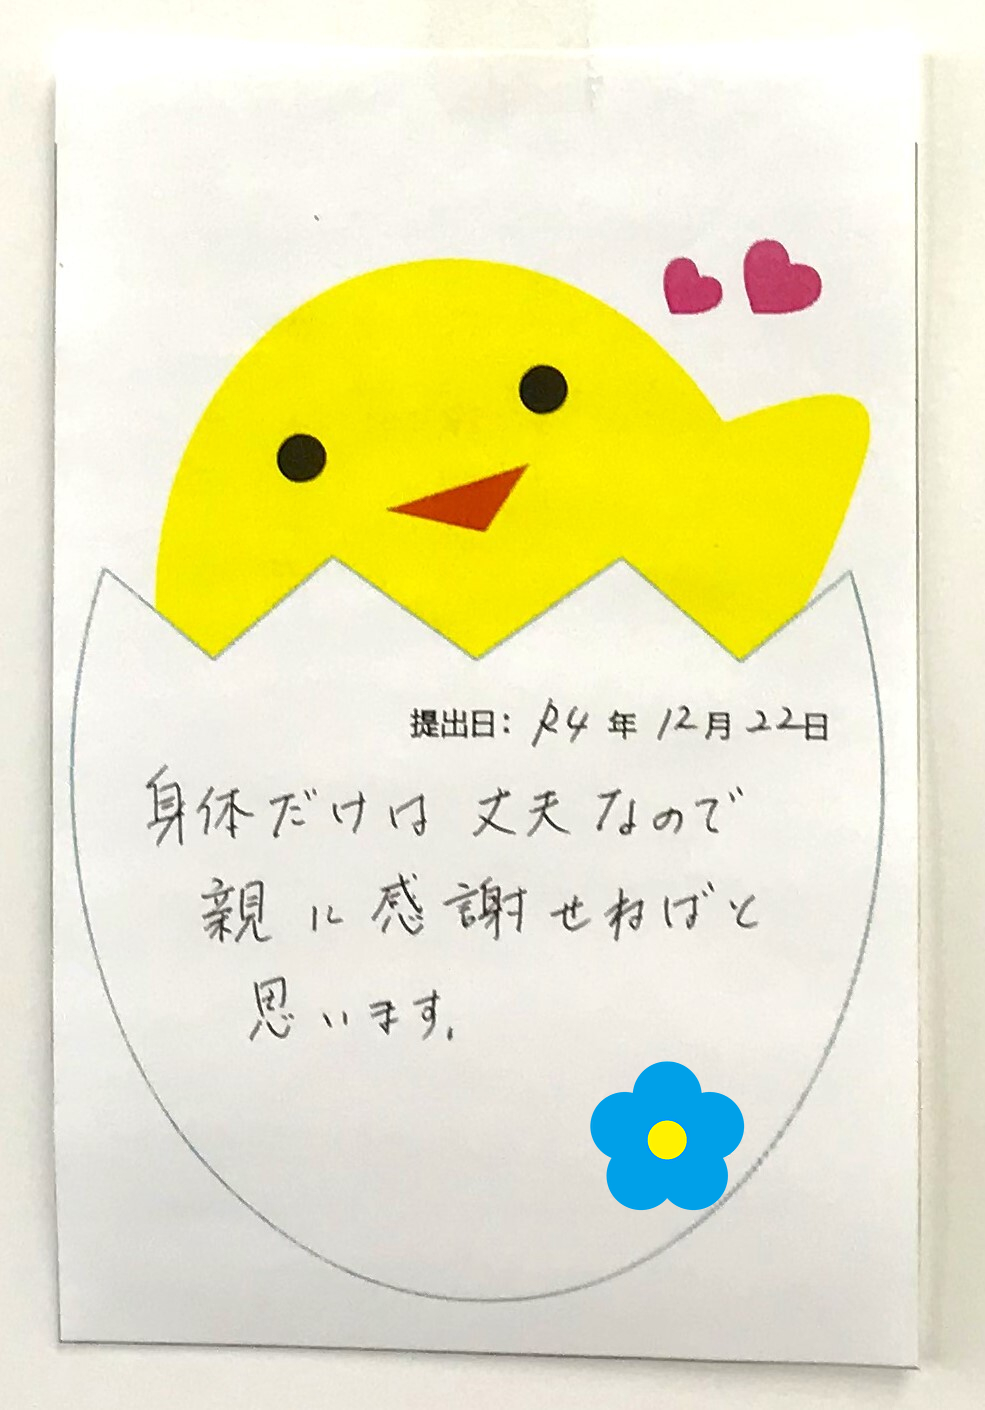 提出日: R4年12月22日
身体だけは丈夫なので
親に感謝せねばと
思います.